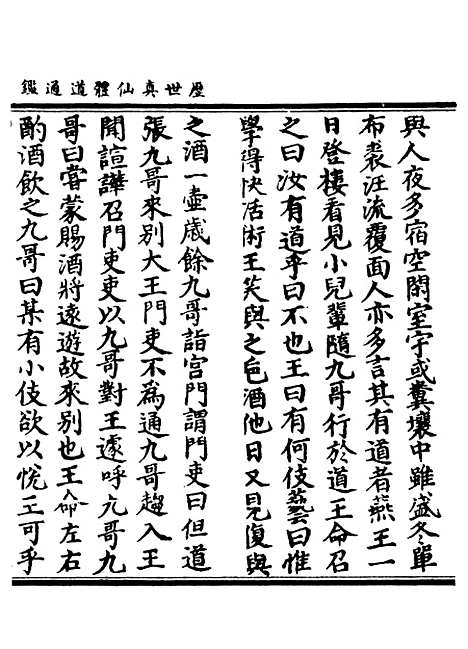 歷世真仙體道通鑑
與人夜多宿空閑室宇或糞壤中雖盛冬單
布裘汪流覆面人亦多言其有道者燕王一
日登樓看見小兒輩隨九哥行於道王命召
之曰汝有道乎曰不也王曰有何伎藝曰惟
學得快活術王笑與之巵酒他日又見復與
之酒一壺歲餘九哥詣宫門謂門吏曰但道
張九哥來別大王門吏不為通九哥趨入王
聞諠譁召門吏吏以九哥對王遽呼九哥九
哥曰嘗蒙賜酒將遠遊故來別也王命左右
酌酒飲之九哥曰某有小伎欲以悅王可乎